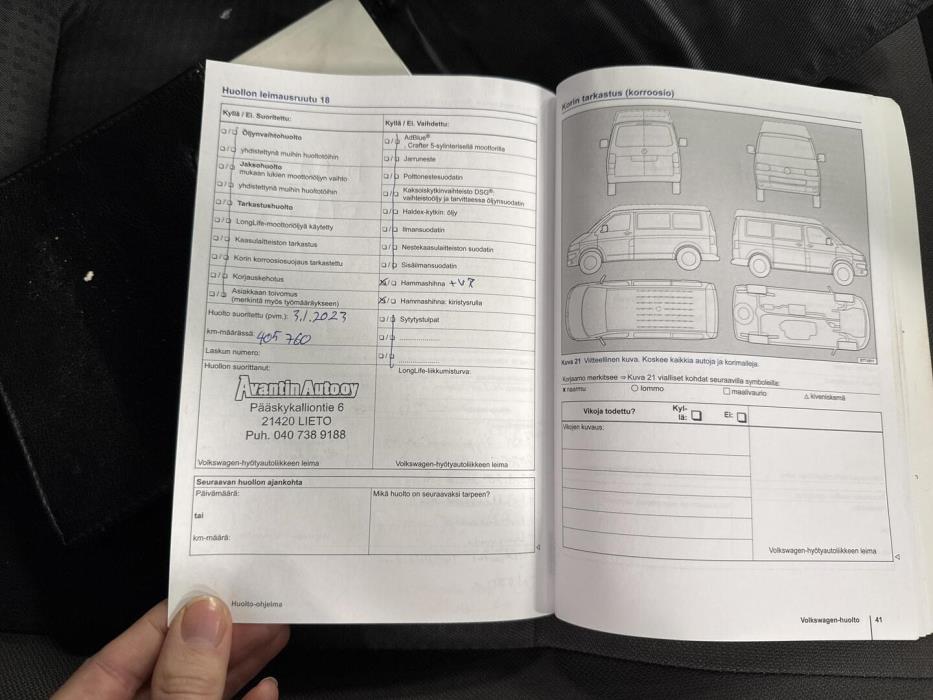 Huollon leimausruutu 18
Kyllä / Ei. Suoritettu:
Öljynvaihtohuolto
yhdistettynä muihin huoltotöihin
Jaksohuolto
mukaan lukien moottoriöljyn vaihto
yhdistettynä muihin huoltotöihin
Tarkastushuolto
LongLife-moottoriöljyä käytetty
Kaasulaitteiston tarkastus
Korin korroosiosuojaus tarkastettu
Korjauskehotus
Asiakkaan toivomus
(merkintä myös työmääräykseen)
Huolto suoritettu (pvm.): 3.1.2023
km-määrässä: 405 760
Laskun numero:
Huollon suorittanut:
Avantin Auto oy
Pääskykalliontie 6
21420 LIETO
Puh. 040 738 9188
Volkswagen-hyötyautoliikkeen leima
Kyllä / Ei. Vaihdettu:
AdBlue®
Crafter 5-sylinterisellä moottorilla
Jarruneste
Polttonestesuodatin
Kaksoiskytkinvaihteisto DSG®:
vaihteistoöljy ja tarvittaessa öljynsuodatin
Haldex-kytkin: öljy
Ilmansuodatin
Nestekaasulaitteiston suodatin
Sisäilmansuodatin
Hammashihna +VP
Hammashihna: kiristysrulla
Sytytystulpat
LongLife-liikkumisturva:
Volkswagen-hyötyautoliikkeen leima
Seuraavan huollon ajankohta
Päivämäärä:
tai
km-määrä:
Mikä huolto on seuraavaksi tarpeen?
Huolto-ohjelma
Korin tarkastus (korroosio)
Kuva 21 Viitteellinen kuva. Koskee kaikkia autoja ja korimalleja.
Korjaamo merkitsee ⇒ Kuva 21 vialliset kohdat seuraavilla symboleilla:
x naarmu
○ lommo
□ maalivaurio
△ kiveniskemä
Vikoja todettu?
Kyl-
lä:
Ei:
Vikojen kuvaus:
Volkswagen-hyötyautoliikkeen leima
Volkswagen-huolto
41